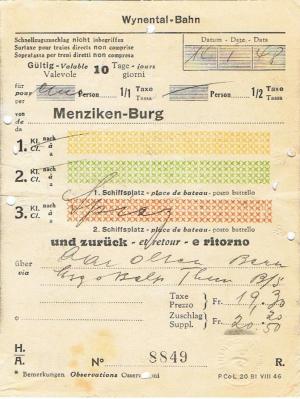 Wynental-Bahn
Schnellzugszuschlag nicht inbegriffen
Surtaxe pour trains directs non comprise
Soprattassa per treni diretti non compresa
Datum - Date - Data
Gültig - Valable 10 Tage - jours
Valevole giorni
für
pour une Person 1/1 Taxe Tassa
Person 1/2 Taxe Tassa
von
de
da
Menziken-Burg
1. Kl. nach
Cl. à
a
2. Kl. nach
Cl. à
a
1. Schiffsplatz - place de bateau - posto battello
3. Kl. nach
Cl. à
a
Spiez
2. Schiffsplatz - place de bateau - posto battello
und zurück - et retour - e ritorno
über
via
Aar Olten Bern
Thun
Taxe
Prezzo Fr. 19.30
Zuschlag
Suppl. Fr.
20.50
H.
A.
No 8849
R.
* Bemerkungen Observations Osservazioni
P Co L. 20 Bl VIII 46